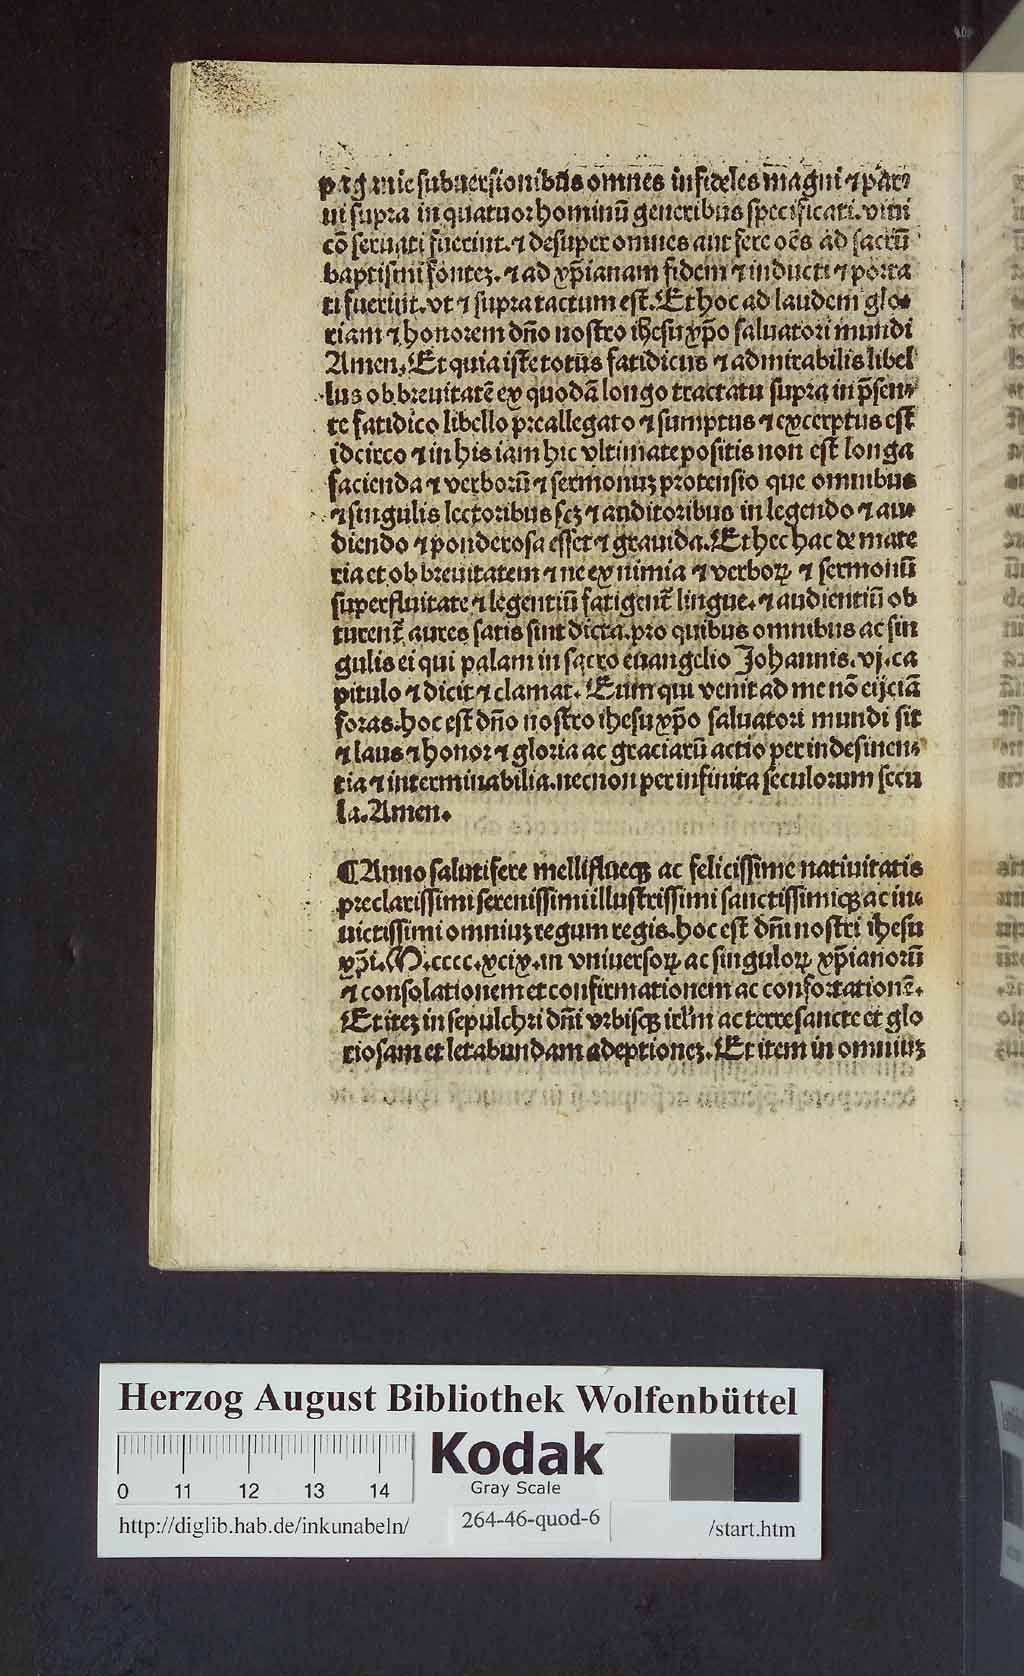 paganie subuersionibus omnes infideles magni ⁊ par⸗
ui supra in quatuor hominū generibus specificati. viui
cō seruati fuerint. ⁊ desuper omnes aut fere oēs ad sacrū
baptismi fontez. ⁊ ad xp̄ianam fidem ⁊ inducti ⁊ porta
ti fuerint. vt ⁊ supra tactum est. Et hoc ad laudem glo⸗
riam ⁊ honorem dn̄o nostro ihesu xp̄o saluatori mundi
Amen. Et quia iste totus fatidicus ⁊ admirabilis libel
lus ob breuitatē ex quodā longo tractatu supra in p̄sen⸗
te fatidico libello preallegato ⁊ sumptus ⁊ excerptus est
idcirco ⁊ in his iam hic vltimate positis non est longa
facienda ⁊ verborū ⁊ sermonuz protensio que omnibus
⁊ singulis lectoribus scz ⁊ auditoribus in legendo ⁊ au⸗
diendo ⁊ ponderosa esset ⁊ grauida. Et hec hac de mate
ria et ob breuitatem ⁊ ne ex nimia ⁊ verboꝝ ⁊ sermonū
superfluitate ⁊ legentiū fatigent᷑ lingue. ⁊ audientiū ob
turent᷑ aures satis sint dicta. pro quibus omnibus ac sin
gulis ei qui palam in sacro euangelio Johannis. vj. ca
pitulo ⁊ dicit ⁊ clamat. Eum qui venit ad me nō eijciā
foras. hoc est dn̄o nostro ihesu xp̄o saluatori mundi sit
⁊ laus ⁊ honor ⁊ gloria ac graciarū actio per indesinen⸗
tia ⁊ interminabilia. necnon per infinita seculorum secu
la. Amen.
¶ Anno salutifere melliflueqꝫ ac felicissime natiuitatis
preclarissimi serenissimi illustrissimi sanctissimiqꝫ ac in⸗
uictissimi omniuz regum regis. hoc est dn̄i nostri ihesu
xp̄i. M. cccc. xcix. in vniuersoꝝ ac singuloꝝ xp̄ianorū
⁊ consolationem et confirmationem ac confortationē.
Et itez in sepulchri dn̄i vrbisqꝫ irl'm ac terre sancte et glo
riosam et letabundam adeptionez. Et item in omniuz
Herzog August Bibliothek Wolfenbüttel
Kodak
Gray Scale
0 11 12 13 14
http://diglib.hab.de/inkunabeln/ 264-46-quod-6 /start.htm